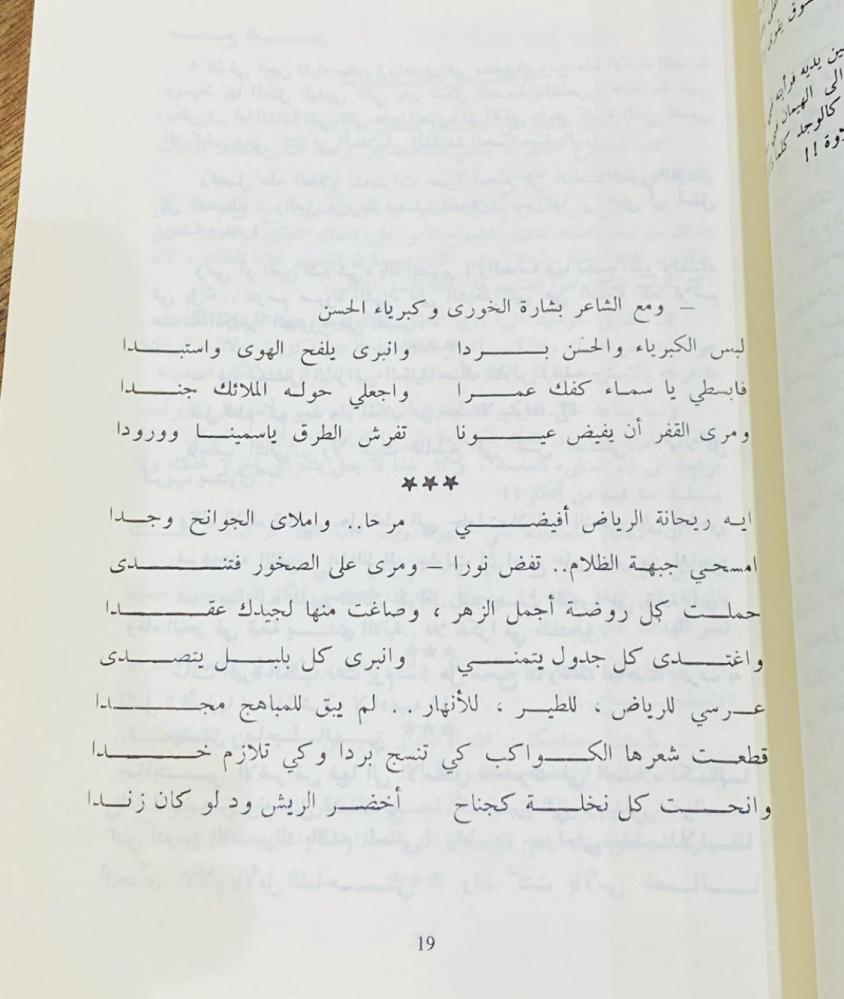 – ومع الشاعر بشارة الخورى وكبرياء الحسن
لبس الكبرياء والحسن بردا وانبرى يلفح الهوى واستبدا
فابسطي يا سماء كفك عمرا واجعلي حوله الملائك جندا
ومرى القفر أن يفيض عيونا تفرش الطرق ياسمينا وورودا
***
ايه ريحانة الرياض أفيضي مرحا.. واملاى الجوانح وجدا
امسحي جبهة الظلام.. تفض نورا – ومرى على الصخور فتندى
حملت كل روضة أجمل الزهر ، وصاغت منها لجيدك عقدا
واغتدى كل جدول يتمنى وانبرى كل بلبل يتصدى
عرسي للرياض ، للطير ، للأنهار.. لم يبق للمباهج مجدا
قطعت شعرها الكواكب كي تنسج بردا وكي تلازم خدا
وانحت كل نخلة كجناح أخضر الريش ود لو كان زندا
19